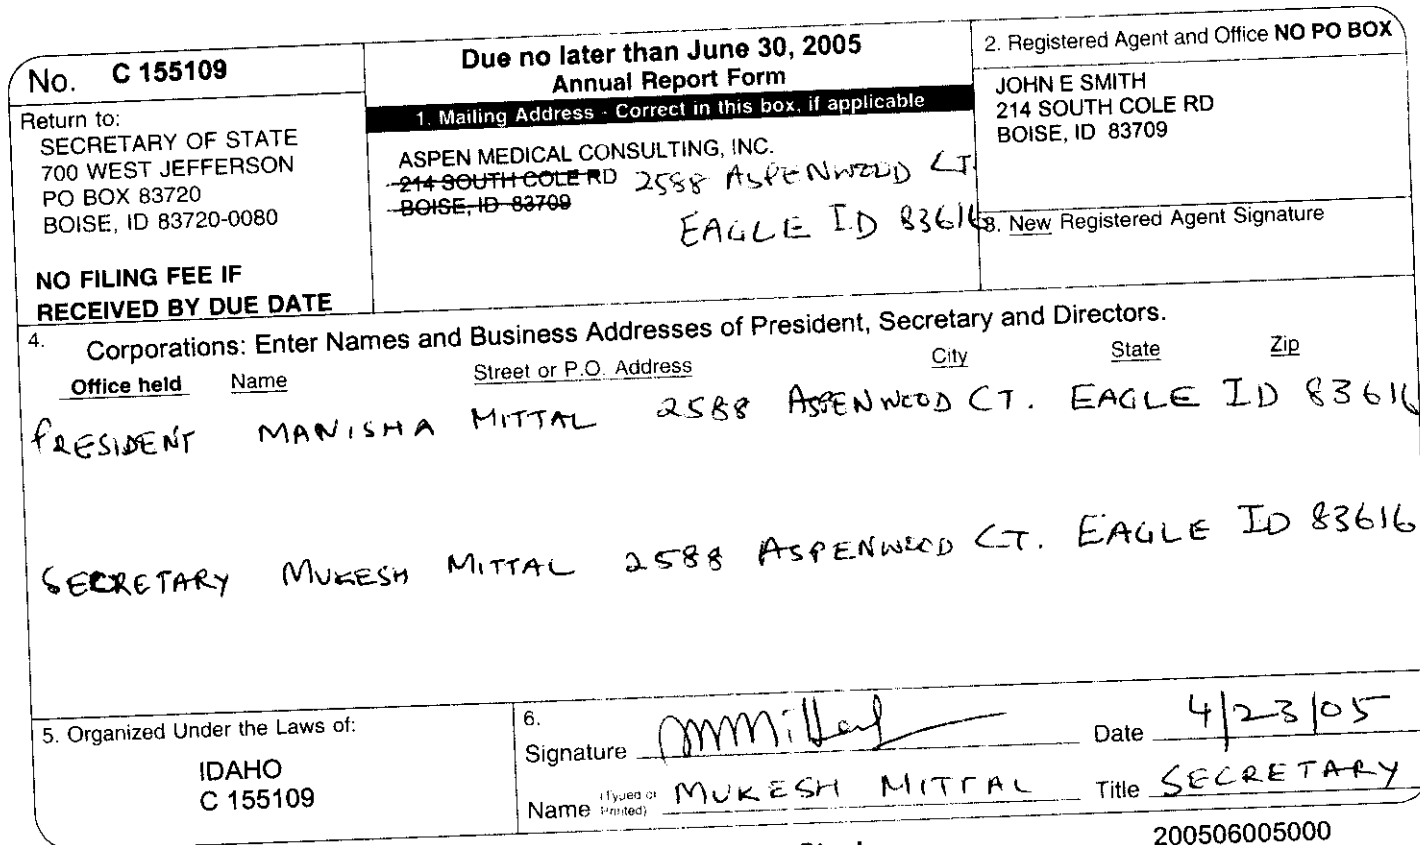 No. C 155109
Return to:
SECRETARY OF STATE
700 WEST JEFFERSON
PO BOX 83720
BOISE, ID 83720-0080
NO FILING FEE IF
RECEIVED BY DUE DATE
Due no later than June 30, 2005
Annual Report Form
1. Mailing Address - Correct in this box, if applicable
ASPEN MEDICAL CONSULTING, INC.
214 SOUTH COLE RD 2588 ASPENWOOD CT.
BOISE, ID 83709
EAGLE ID 83616
2. Registered Agent and Office NO PO BOX
JOHN E SMITH
214 SOUTH COLE RD
BOISE, ID 83709
3. New Registered Agent Signature
4. Corporations: Enter Names and Business Addresses of President, Secretary and Directors.
Office held Name Street or P.O. Address City State Zip
PRESIDENT MANISHA MITTAL 2588 ASPENWOOD CT. EAGLE ID 83616
SECRETARY MUKESH MITTAL 2588 ASPENWOOD CT. EAGLE ID 83616
5. Organized Under the Laws of:
IDAHO
C 155109
6.
Signature MMittal Date 4/23/05
Name (Typed or Printed) MUKESH MITTAL Title SECRETARY
200506005000